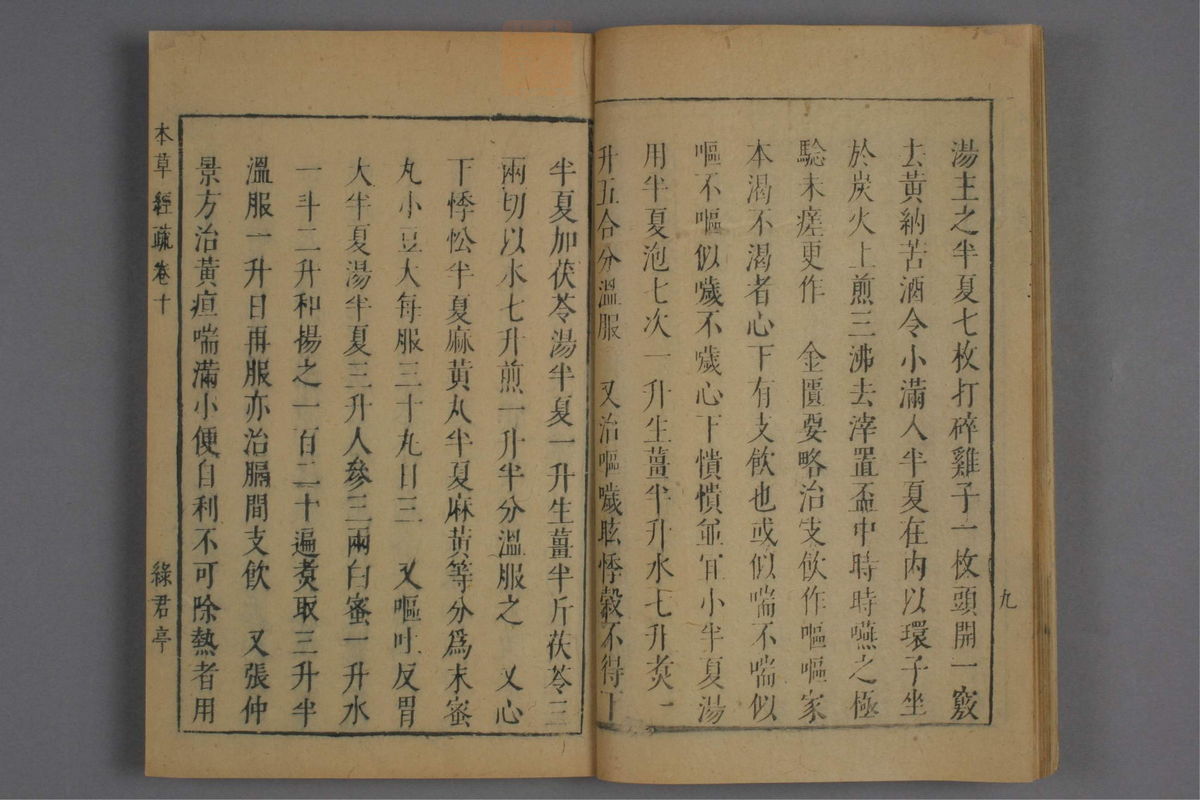 湯主之半夏七枚打碎雞子一枚頭開一竅
去黃納苦酒令小滿入半夏在內以環子坐
於炭火上煎三沸去滓置盃中時時嚥之極
驗未瘥更作　金匱要略治支飲作嘔嘔家
本渴不渴者心下有支飲也或似喘不喘似
嘔不嘔似噦不噦心下憒憒並宜小半夏湯
用半夏泡七次一升生薑半升水七升煑一
升五合分溫服　又治嘔噦眩悸穀不得下
九
半夏加茯苓湯半夏一升生薑半斤茯苓三
兩切以水七升煎一升半分溫服之　又心
下悸忪半夏麻黃丸半夏麻黃等分爲末蜜
丸小豆大每服三十丸日三　又嘔吐反胃
大半夏湯半夏三升人參三兩白蜜一升水
一斗二升和揚之一百二十遍煑取三升半
溫服一升日再服亦治膈間支飲　又張仲
景方治黃疸喘滿小便自利不可除熱者用
本草經疏 卷十 綠君亭